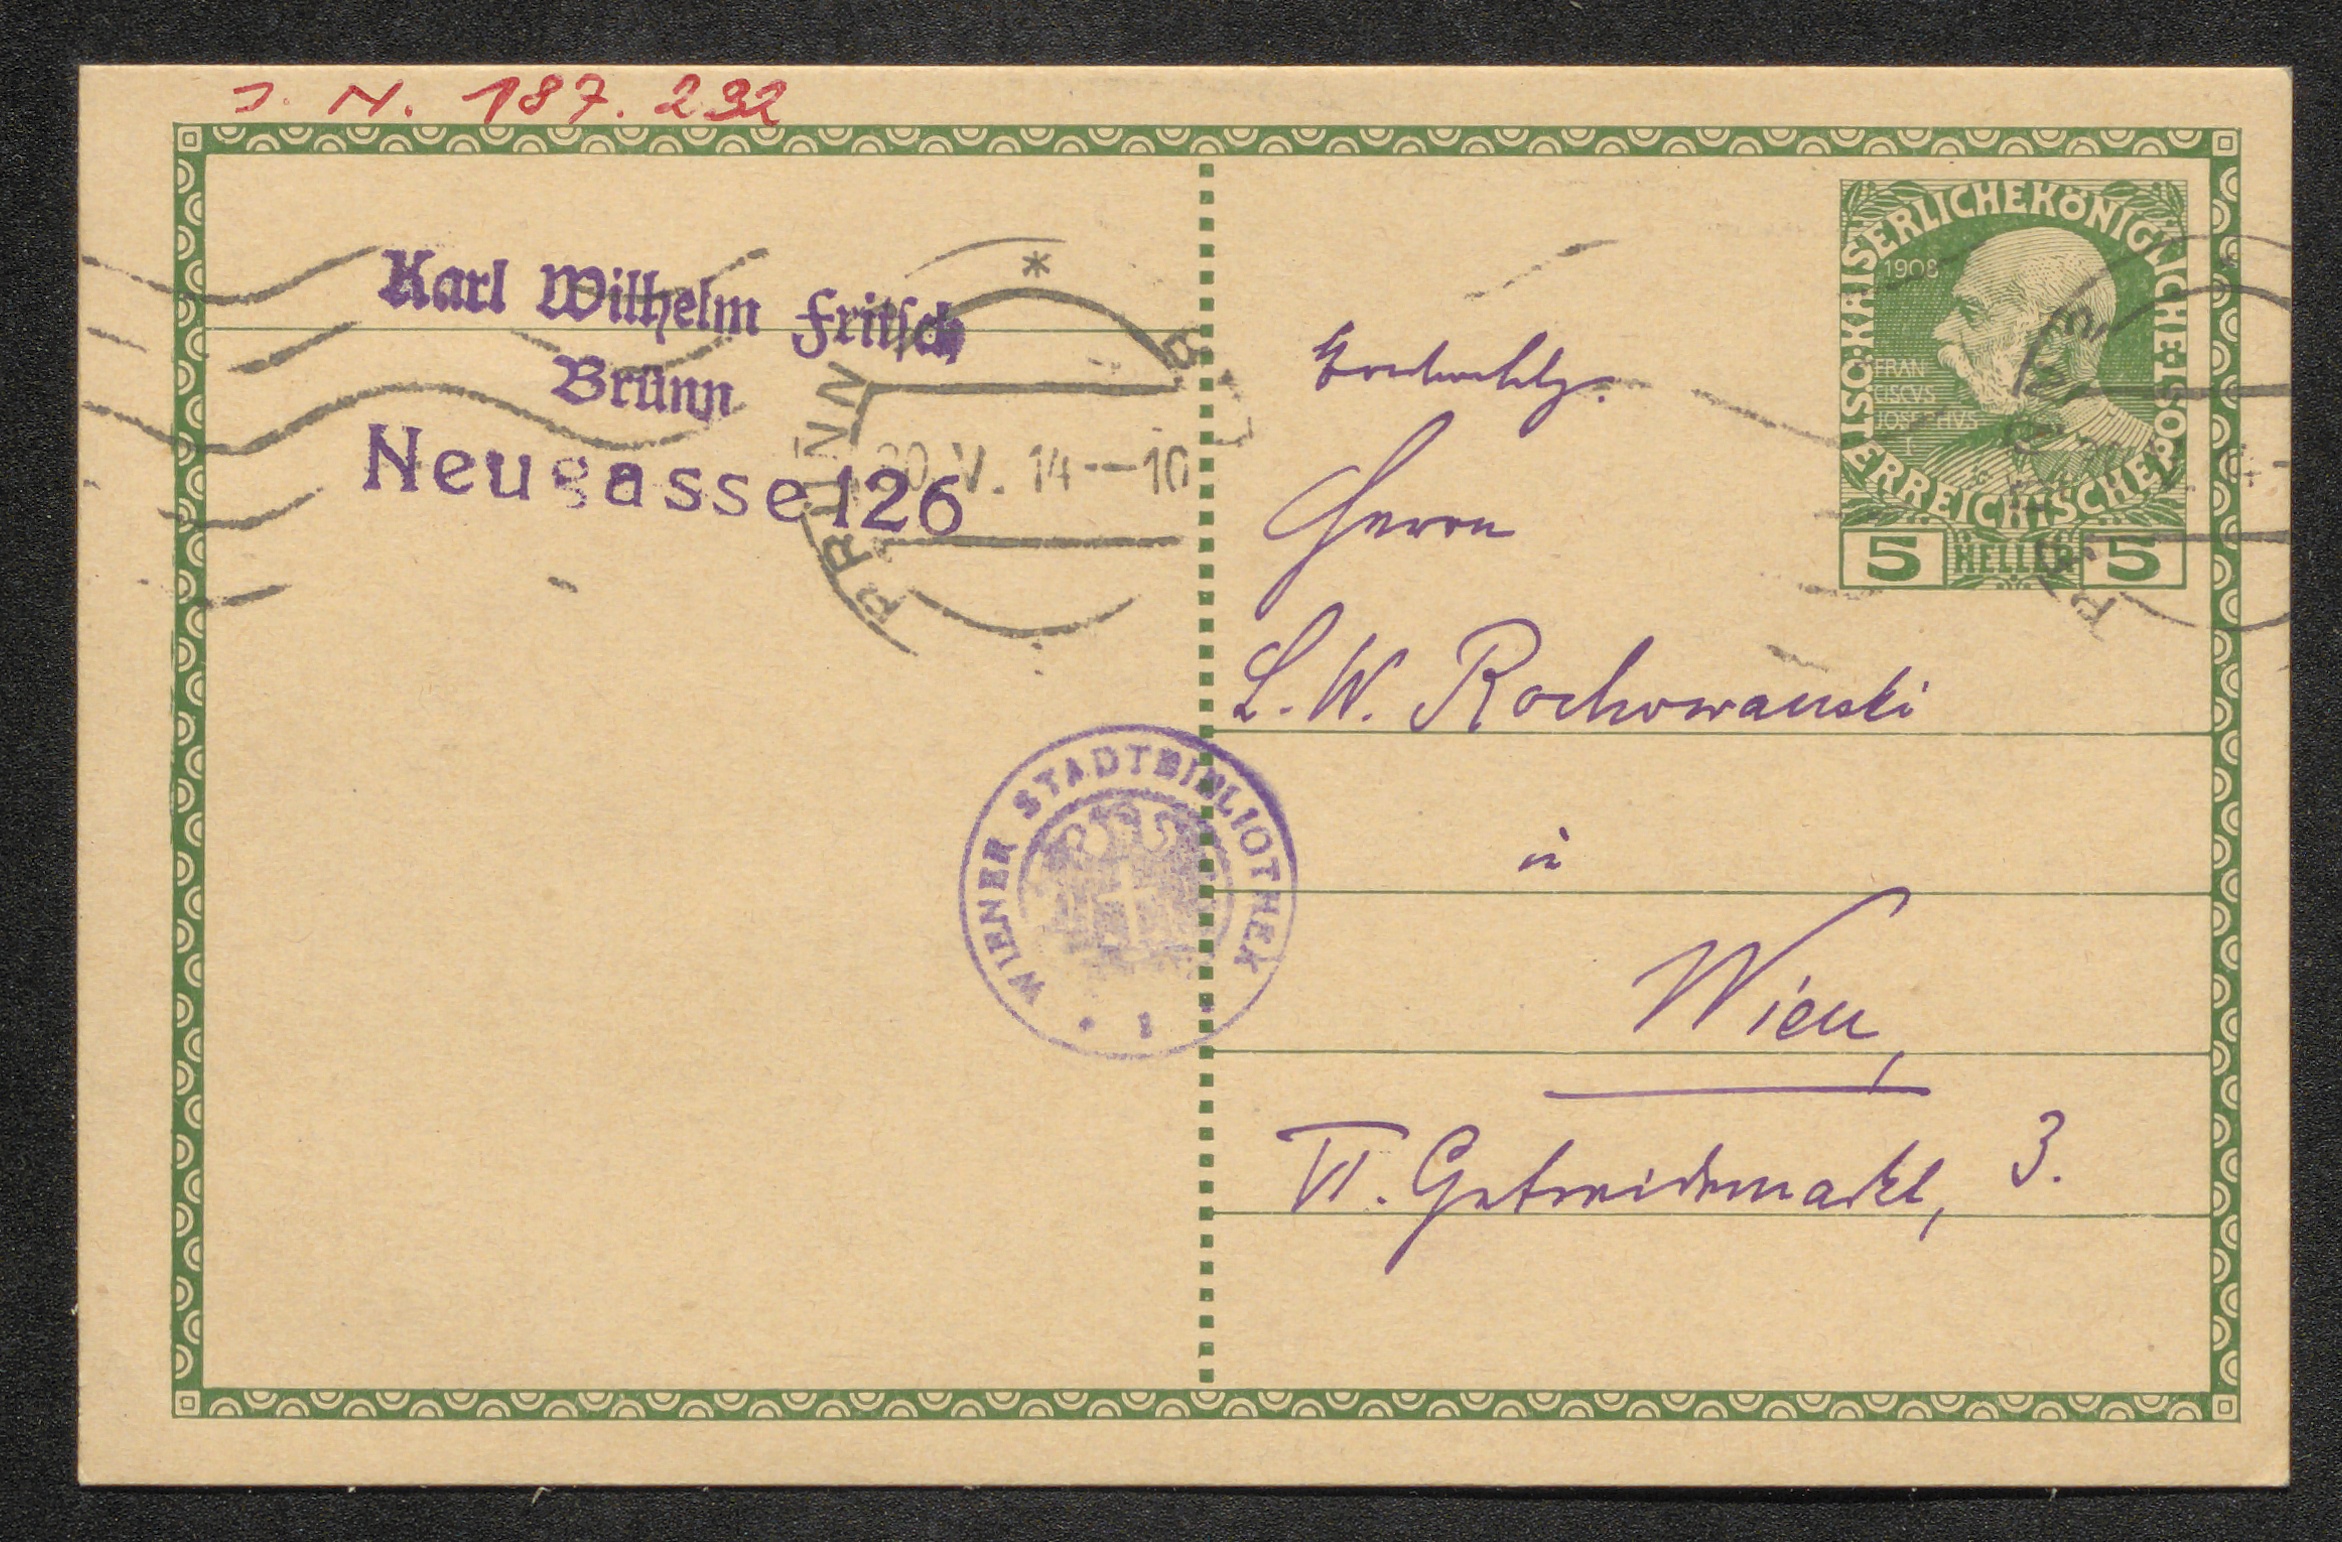 J. N. 187.232
Karl Wilhelm Fritsch
Brünn
Neugasse 126
BRÜNN
20. V. 14--10
KAISERLICHE KÖNIGLICHE ÖSTERREICHISCHE
1908
FRAN
CISCVS
JOSEPHVS
I
5 HELLER 5
Herrn
L. W. Rochowanski
WIENER STADTBIBLIOTHEK
in
Wien,
VI. Getreidemarkt, 3.